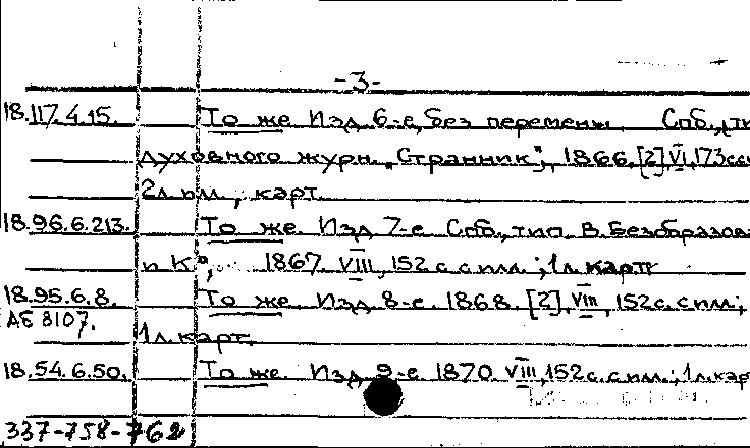 -3-
18.117.4.15. То же Изд 6-е, без перемены Спб., тип
духовного журн. „Странник", 1866. [2], VI, 173 с. с
2 л. ил., карт.
18.96.6.213. То же. Изд 7-е Спб., тип В. Безобразова
и К°, 1867. VIII, 152 с. с илл.; 1 л. карт
18.95.6.8. То же. Изд 8-е 1868. [2], VIII, 152 с. с ил.;
АБ 8107. 1 л. карт.
18.54.6.50. То же. Изд 9-е 1870 VIII, 152 с. с илл.; 1 л. кар
337-758-762